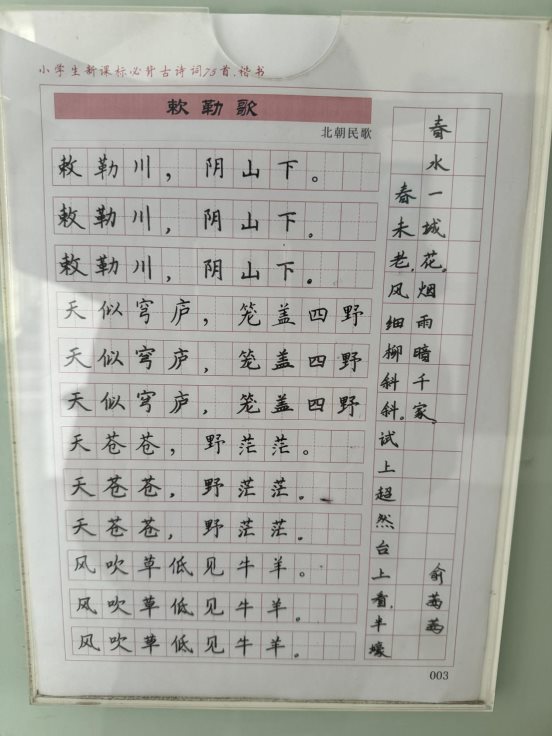 小学生新课标必背古诗词75首.楷书
敕勒歌
北朝民歌
敕勒川，阴山下。
敕勒川，阴山下。
敕勒川，阴山下。
天似穹庐，笼盖四野
天似穹庐，笼盖四野
天似穹庐，笼盖四野
天苍苍，野茫茫。
天苍苍，野茫茫。
天苍苍，野茫茫。
风吹草低见牛羊。
风吹草低见牛羊。
风吹草低见牛羊。
春未老，风细柳斜斜。试上超然台上看，半壕
春水一城花。烟雨暗千家。
俞茜茜
003